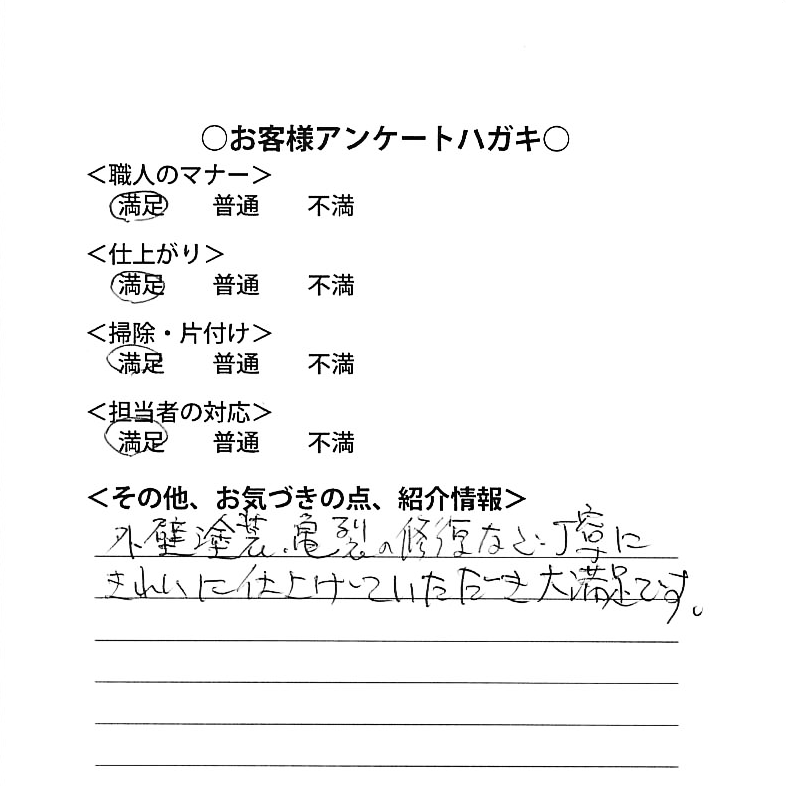 ○お客様アンケートハガキ○
＜職人のマナー＞
満足 普通 不満
＜仕上がり＞
満足 普通 不満
＜掃除・片付け＞
満足 普通 不満
＜担当者の対応＞
満足 普通 不満
＜その他、お気づきの点、紹介情報＞
外壁塗装、亀裂の修復など丁寧に
きれいに仕上げていただき大満足です。